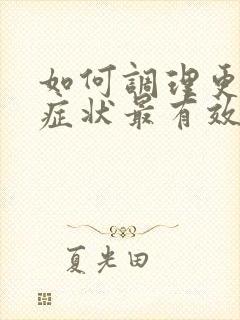 如何調理更
症状最有效
夏光田